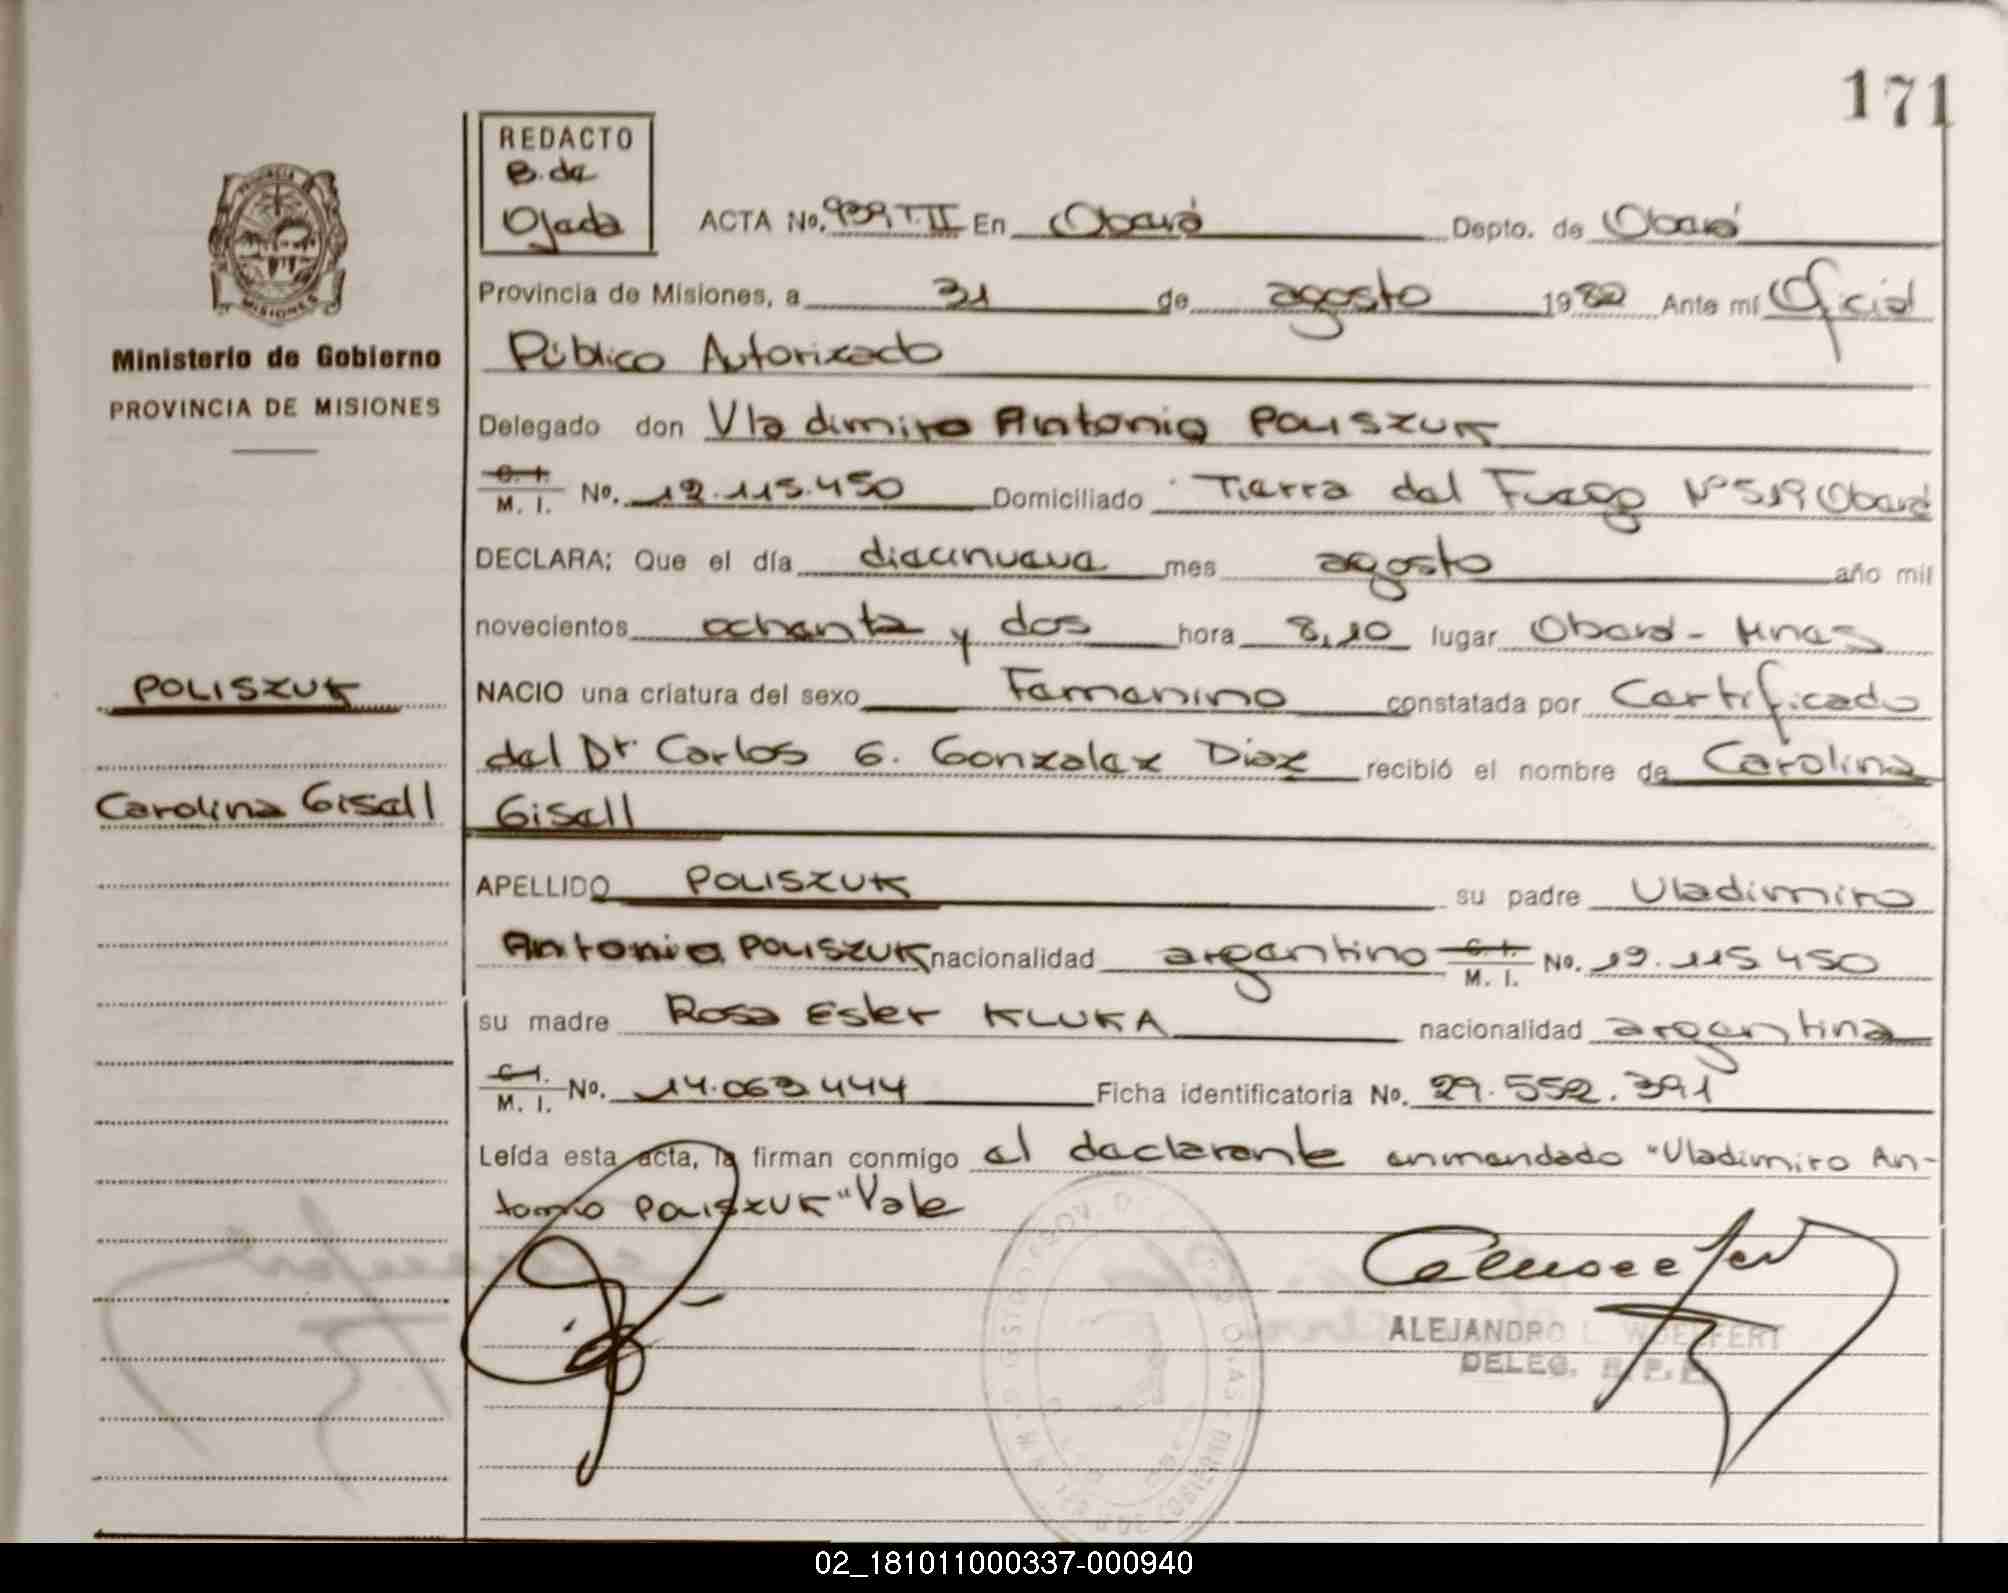 171
REDACTO
B. de
Ojeda
ACTA No. 939 T.II En Oberá Depto. de Oberá
Provincia de Misiones, a 31 de agosto 1982 Ante mí Oficial
Público Autorizado
Ministerio de Gobierno
PROVINCIA DE MISIONES
Delegado don Vladimiro Antonio POLISZUK
C. I.
M. I. No. 12.115.450 Domiciliado Tierra del Fuego Nº 519 Oberá
DECLARA; Que el día diecinueve mes agosto año mil
novecientos ochenta y dos hora 8,10 lugar Oberá - Mnes
POLISZUK
NACIO una criatura del sexo Femenino constatada por Certificado
del Dr Carlos G. Gonzalez Diaz recibió el nombre de Carolina
Carolina Gisell
Gisell
APELLIDO POLISZUK su padre Vladimiro
Antonio POLISZUK nacionalidad argentino C. I. M. I. No. 12.115.450
su madre Rosa Ester KLUKA nacionalidad argentina
C. I.
M. I. No. 14.063.444 Ficha identificatoria No. 29.552.391
Leída esta acta, la firman conmigo el declarante enmendado "Vladimiro An-
tonio POLISZUK" Vale
ALEJANDRO L. WOEFFERT
DELEG.
02_181011000337-000940